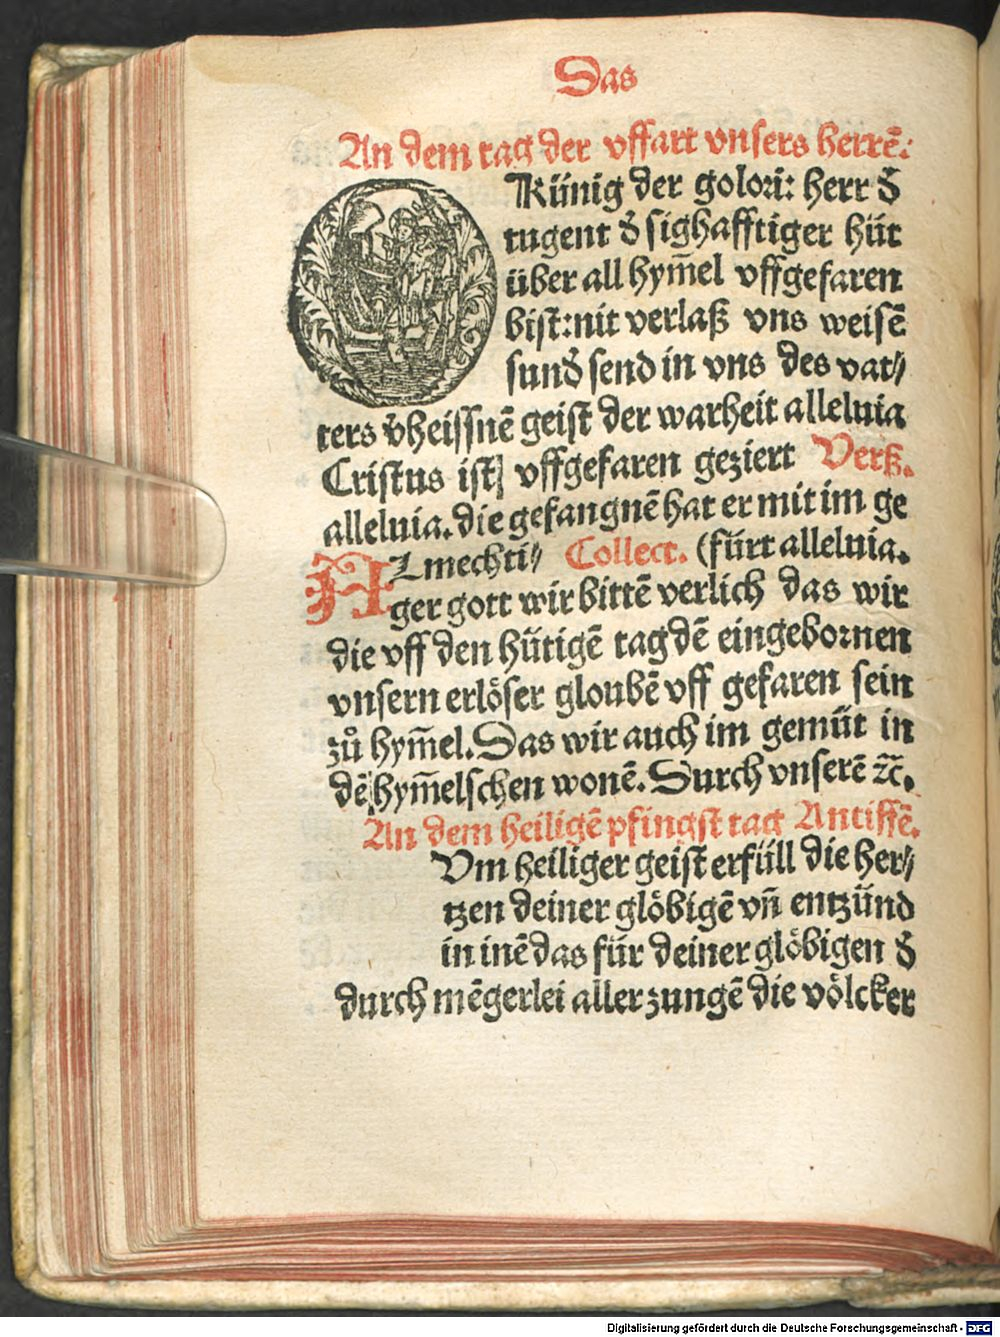 Das
An dem tag der vffart vnsers herrē:
O Künig der golorī: herr đ
tugent đ sighafftiger hüt
über all hym̄el vffgefaren
bist: nit verlaß vns weisē
sunđ send in vns des vat⸗
ters v̄heissnē geist der warheit alleluia
Cristus ist vffgefaren geziert Verß.
alleluia. die gefangnē hat er mit im ge
ALmechti⸗ Collect. (fürt alleluia.
ger gott wir bittē verlich das wir
die vff den hütigē tag dē eingebornen
vnsern erlöser gloubē vff gefaren sein
zů hym̄el. Das wir auch im gemüt in
dē hym̄elschen wonē. Durch vnserē ꝛc̄.
An dem heiligē pfingst tag Antiffē.
Vm heiliger geist erfüll die her⸗
tzen deiner glöbigē vn̄ entzünd
in inē das für deiner glöbigen đ
durch mēgerlei aller zungē die völcker
Digitalisierung gefördert durch die Deutsche Forschungsgemeinschaft - DFG